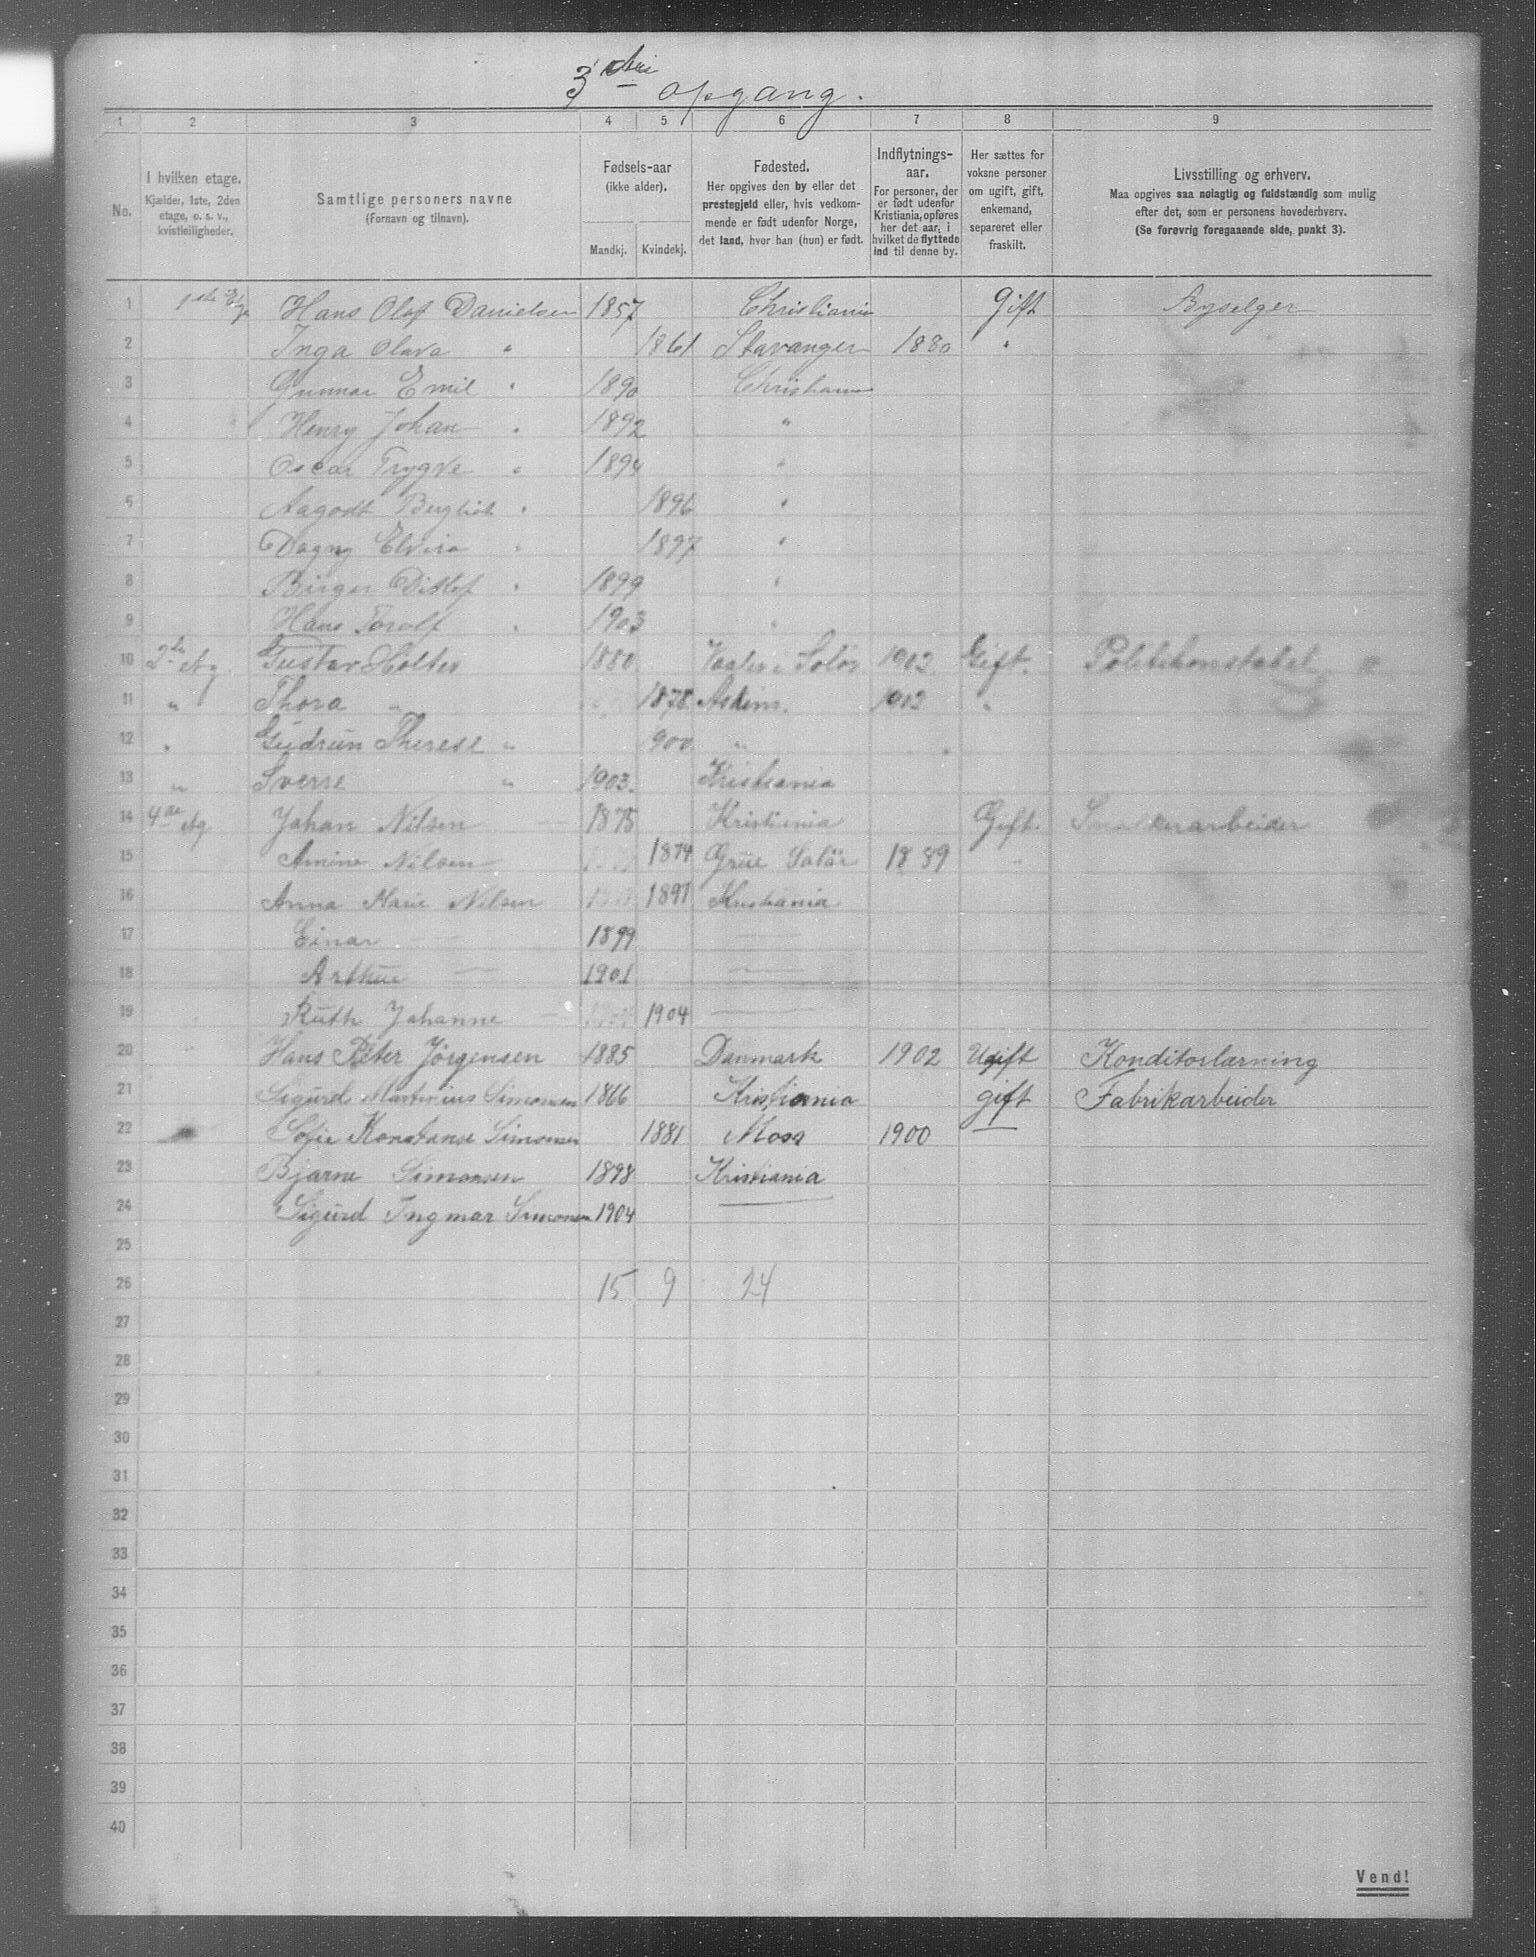 3die opgang.
1 2 3 4 5 6 7 8 9
No. I hvilken etage. Kjælder, 1ste, 2den etage, o. s. v., kvistleiligheder. Samtlige personers navne (Fornavn og tilnavn). Fødsels-aar (ikke alder). Mandkj. Kvindekj. Fødested. Her opgives den by eller det prestegjeld eller, hvis vedkommende er født udenfor Norge, det land, hvor han (hun) er født. Indflytnings-aar. For personer, der er født udenfor Kristiania, opføres her det aar, i hvilket de flyttede ind til denne by. Her sættes for voksne personer om ugift, gift, enkemand, separeret eller fraskilt. Livsstilling og erhverv. Maa opgives saa nøiagtig og fuldstændig som mulig efter det, som er personens hovederhverv. (Se forøvrig foregaaende side, punkt 3).
1 1ste Etg Hans Olof Danielsen 1857 Christiania Gift Byselger
2 Inga Olava " 1861 Stavanger 1880 "
3 Gunnar Emil " 1890 Christiania
4 Henry Johan " 1892 "
5 Oscar Trygve " 1894 "
6 Aagodt " 1896 "
7 Dagny Elvira " 1897 "
8 Birger Ditlef " 1899 "
9 Hans Torolf " 1903 "
10 2de etg. Gustav Holter 1880 Vaaler i Solør 1902 Gift. Politikonstabel
11 " Thora " 1878 Askim. 1902 "
12 " Gudrun Therese " 900 " "
13 " Sverre " 1903. Kristiania
14 4de etg Johan Nilsen 1875 Kristiania Gift. Snekkerarbeider
15 Amine Nilsen 1874 Grue Solør 1889
16 Anna Marie Nilsen 1897 Kristiania
17 Einar — 1899 —
18 Arthur — 1901 —
19 Ruth Johanne — 1904 —
20 Hans Peter Jørgensen 1885 Danmark 1902 Ugift Konditorlærning
21 Sigurd Martinius Simonsen 1866 Kristiania gift Fabrikarbeider
22 Sofie Konstanse Simonsen 1881 Moss 1900
23 Bjarne Simonsen 1898 Kristiania
24 Sigurd Ingmar Simonsen 1904
25
26 15 9 24
27
28
29
30
31
32
33
34
35
36
37
38
39
40
Vend!